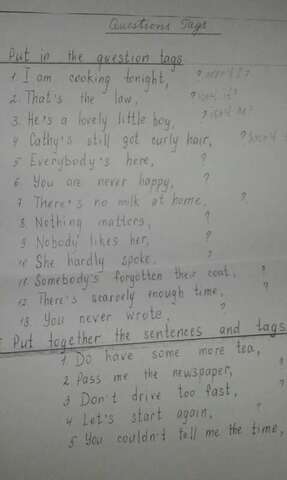 Questions Tags
Put in the question tags
1. I am cooking tonight, ? aren't I?
2. That's the law, ? isn't it?
3. He's a lovely little boy, ? isn't he?
4 Cathy's still got curly hair, ?
5. Everybody's here, ?
6. You are never happy, ?
7. There's no milk at home, ?
8. Nothing matters, ?
9. Nobody likes her, ?
10 She hardly spoke, ?
11 Somebody's forgotten their coat, ?
12 There's scarcely enough time, ?
13. You never wrote, ?
Put together the sentences and tags
1. Do have some more tea, ?
2 Pass me the newspaper, ?
3 Don't drive too fast, ?
4 Let's start again, ?
5 You couldn't tell me the time,